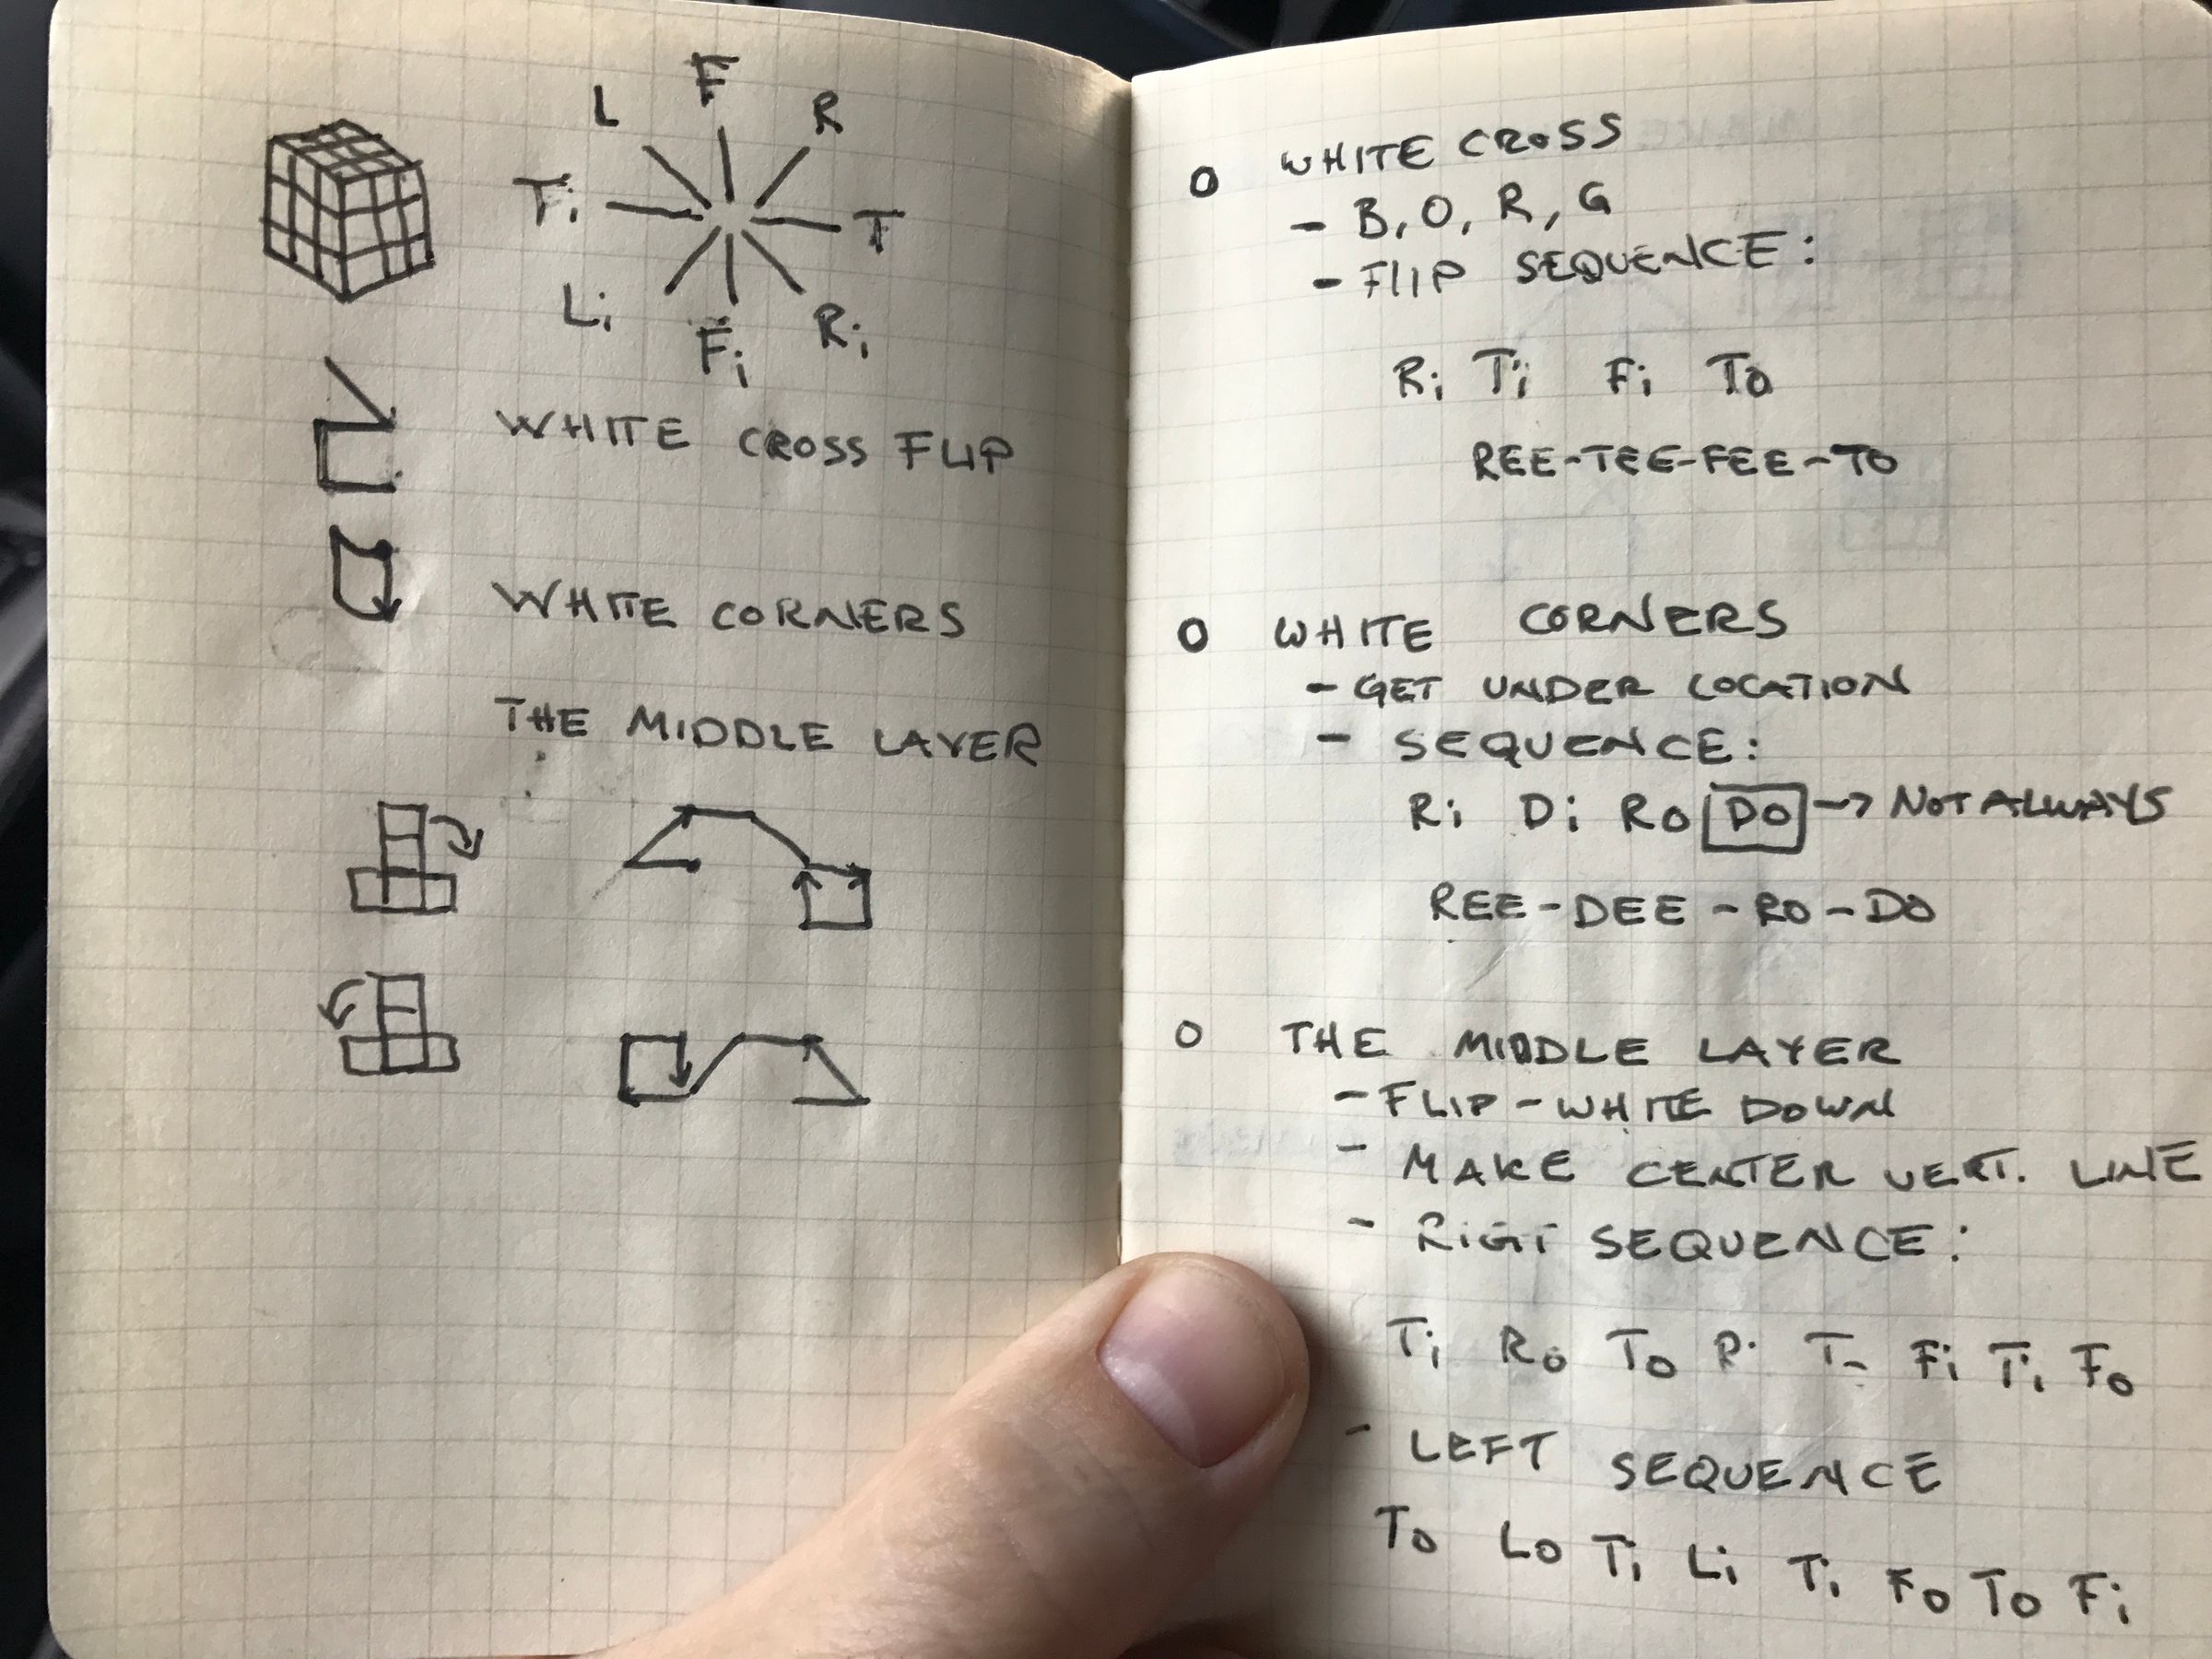 F
L R
Ti T
Li Ri
Fi
WHITE CROSS FLIP
WHITE CORNERS
THE MIDDLE LAYER
O WHITE CROSS
- B, O, R, G
- FLIP SEQUENCE:
Ri Ti Fi To
REE-TEE-FEE-TO
O WHITE CORNERS
- GET UNDER LOCATION
- SEQUENCE:
Ri Di Ro Do → NOT ALWAYS
REE-DEE-RO-DO
O THE MIDDLE LAYER
- FLIP-WHITE DOWN
- MAKE CENTER VERT. LINE
- SEQUENCE:
Ti Ro To Fi Ti Fo
- LEFT SEQUENCE
To Lo Ti Li Ti Fo To Fi